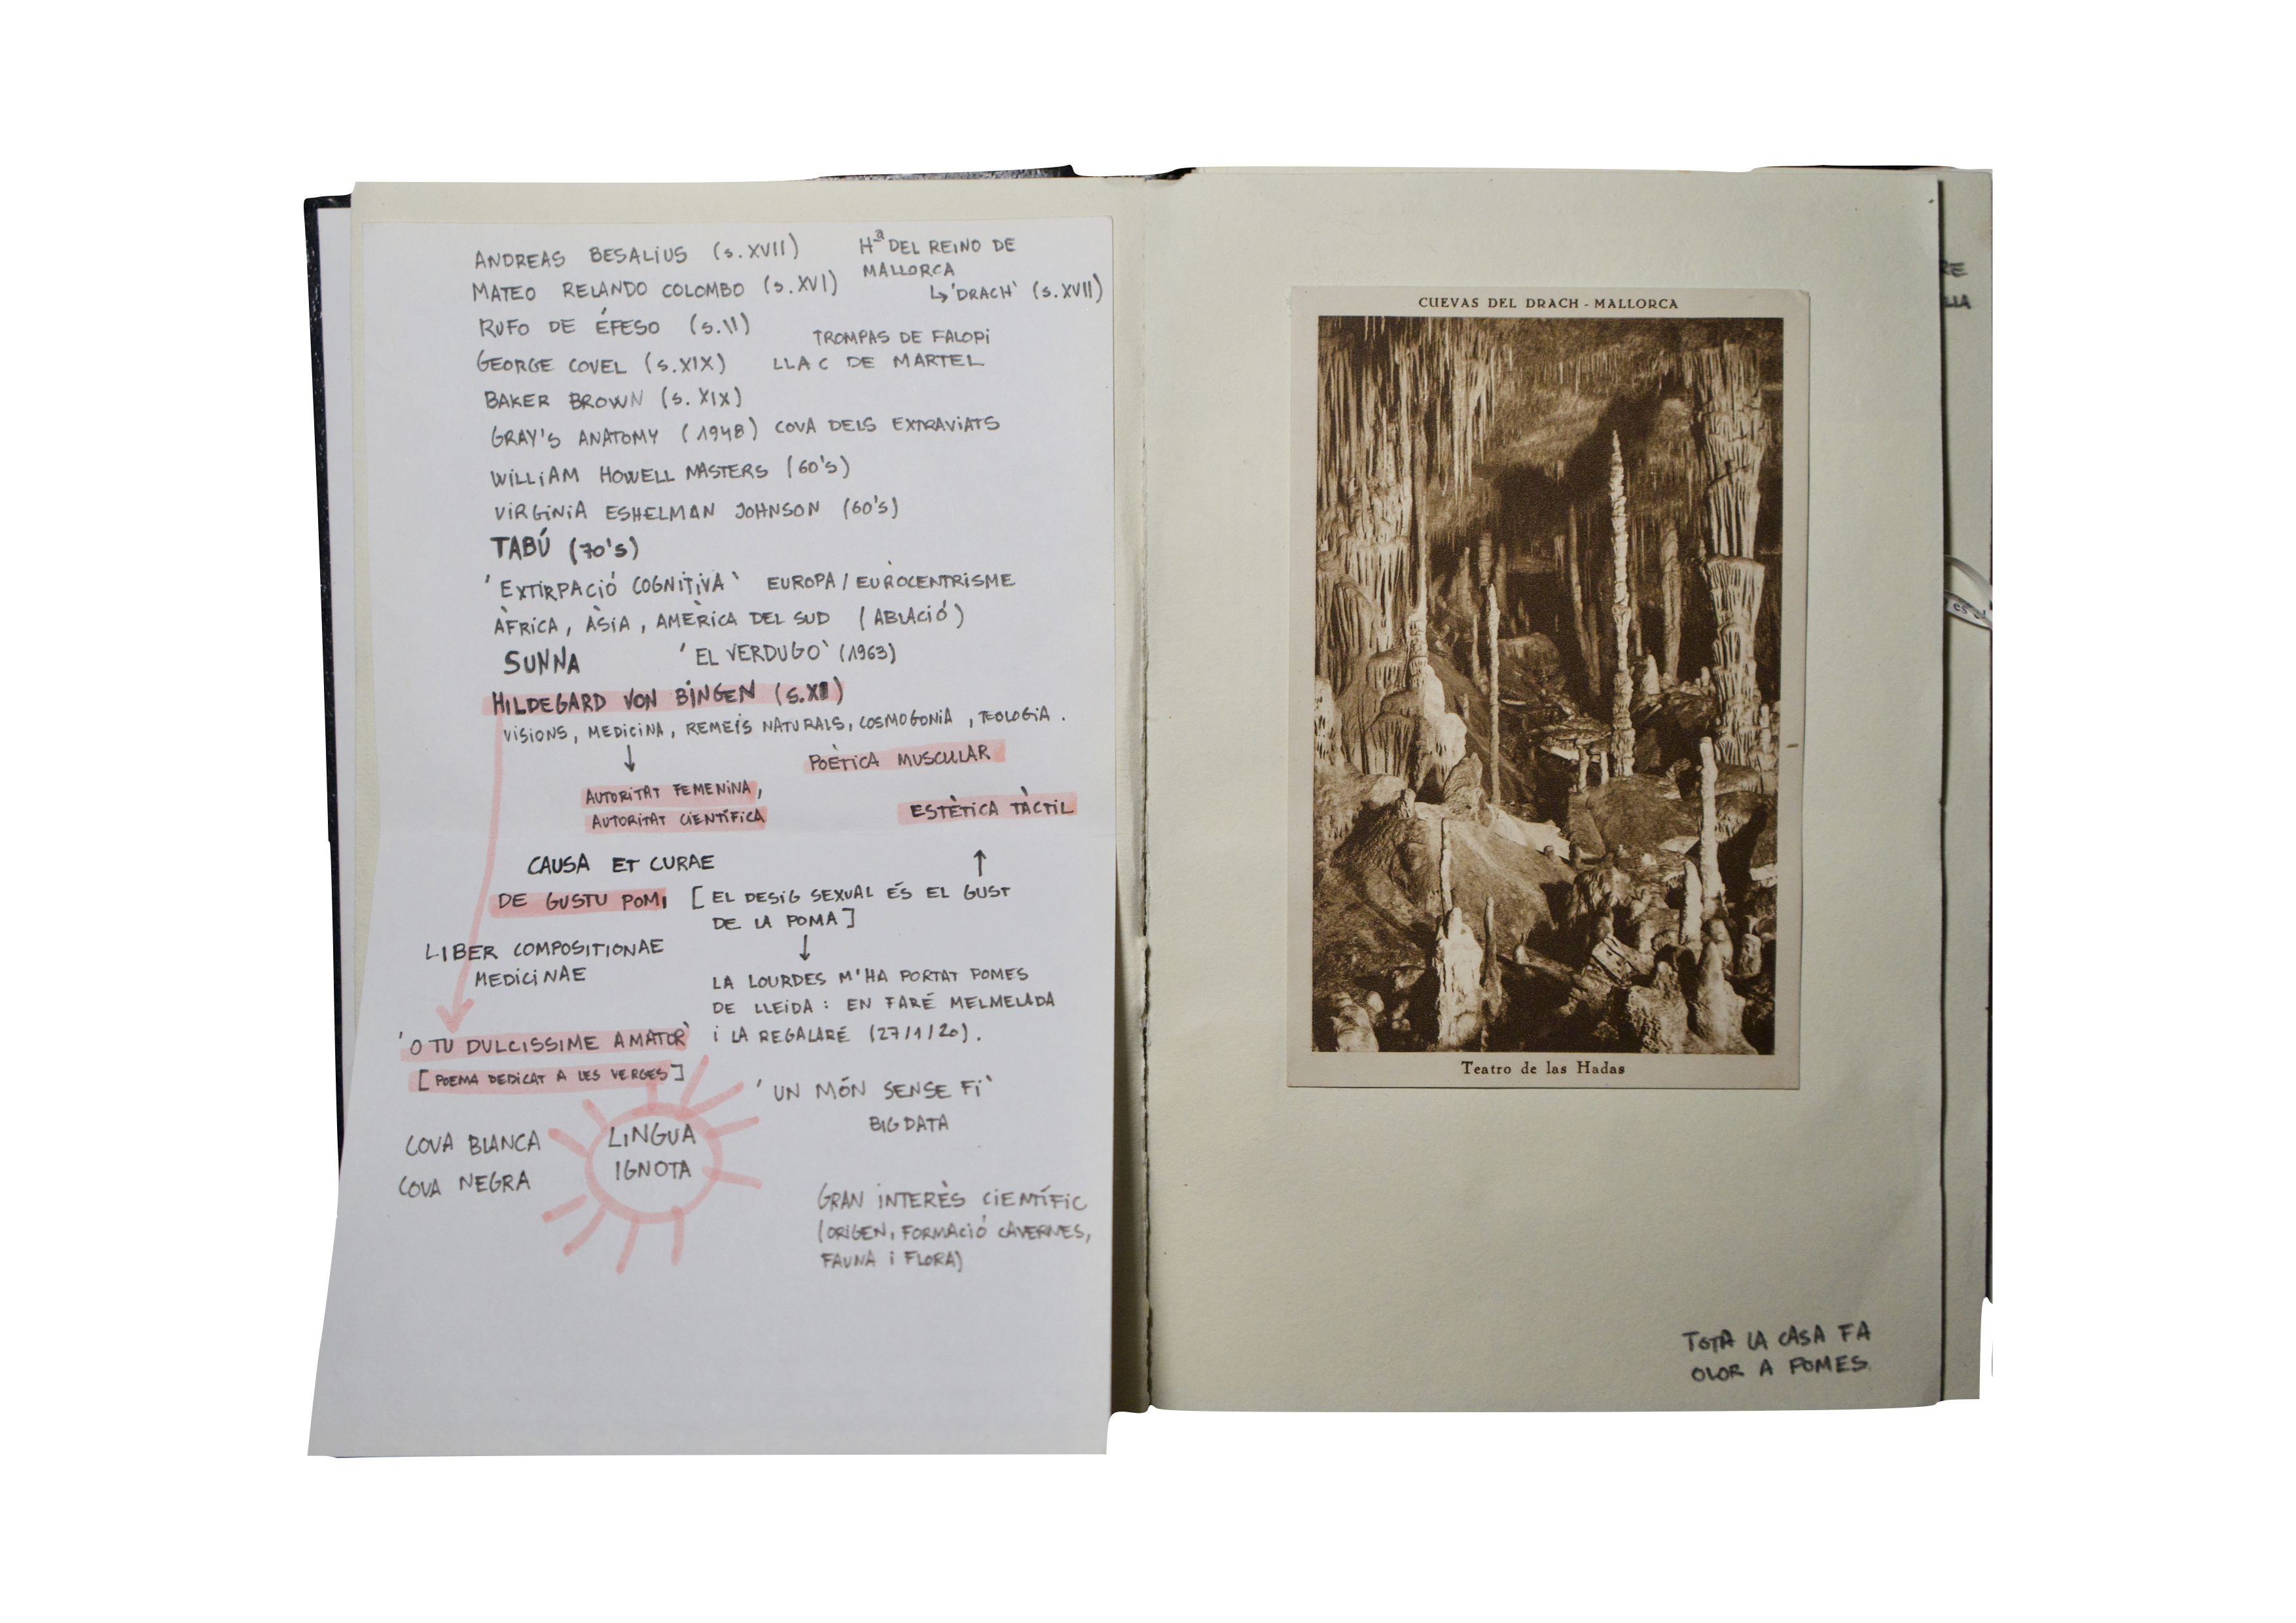 ANDREAS BESALIUS (S. XVII)
Hª DEL REINO DE
MALLORCA
↳ 'DRACH' (S. XVII)
MATEO RELANDO COLOMBO (S. XVI)
RUFO DE ÉFESO (S. II)
TROMPAS DE FALOPI
GEORGE COVEL (S. XIX)
LLAC DE MARTEL
BAKER BROWN (S. XIX)
GRAY'S ANATOMY (1948) COVA DELS EXTRAVIATS
WILLIAM HOWELL MASTERS (60'S)
VIRGINIA ESHELMAN JOHNSON (60'S)
TABÚ (70'S)
'EXTIRPACIÓ COGNITIVA' EUROPA / EUROCENTRISME
ÀFRICA, ÀSIA, AMÈRICA DEL SUD (ABLACIÓ)
SUNNA 'EL VERDUGO' (1963)
HILDEGARD VON BINGEN (S. XII)
VISIONS, MEDICINA, REMEIS NATURALS, COSMOGONIA, TEOLOGIA.
↓
POÈTICA MUSCULAR
AUTORITAT FEMENINA,
AUTORITAT CIENTÍFICA
ESTÈTICA TÀCTIL
↑
CAUSA ET CURAE
DE GUSTU POMI [EL DESIG SEXUAL ÉS EL GUST
DE LA POMA]
↓
LIBER COMPOSITIONAE
MEDICINAE
LA LOURDES M'HA PORTAT POMES
DE LLEIDA: EN FARÉ MELMELADA
I LA REGALARÉ (27/1/20).
'O TU DULCISSIME AMATOR'
[POEMA DEDICAT A LES VERGES]
'UN MÓN SENSE FI'
BIG DATA
COVA BLANCA
COVA NEGRA
LINGUA
IGNOTA
GRAN INTERÈS CIENTÍFIC
(ORIGEN, FORMACIÓ CAVERNES,
FAUNA I FLORA)
CUEVAS DEL DRACH - MALLORCA
Teatro de las Hadas
TOTA LA CASA FA
OLOR A POMES.